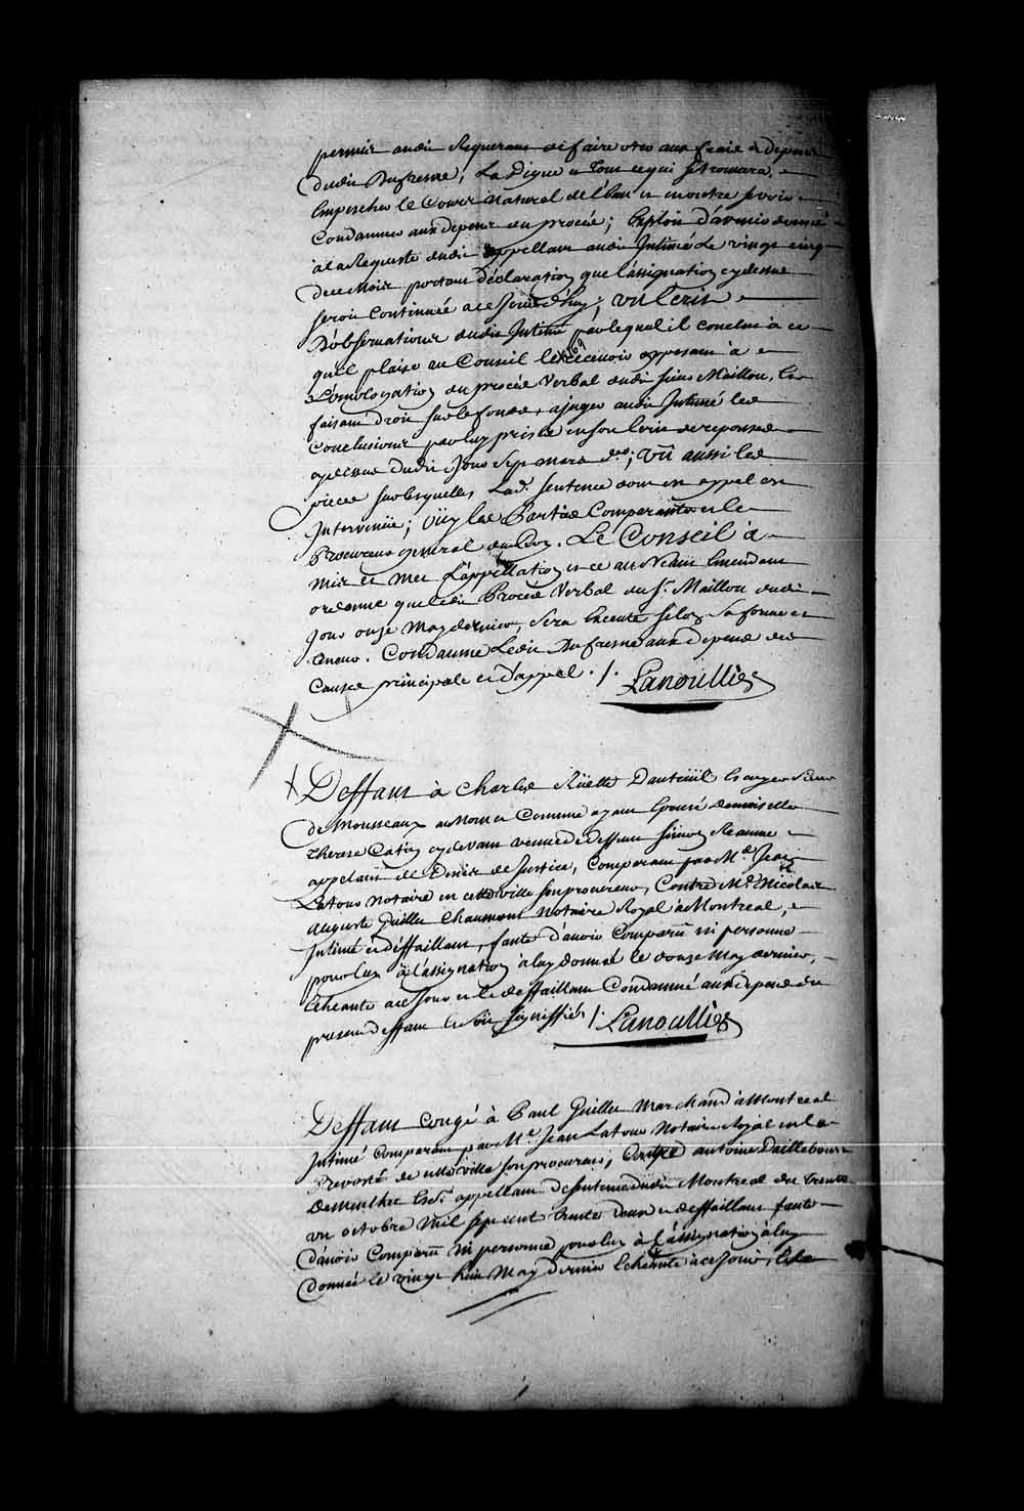 permis audit Requerant de faire oter aux fraix et depens
dudit Dufresne, La Digue et Tout ce qui se trouvera,
Empescher le Cours naturel de l'Eau et en outre se voir
Condamner aux depens du procés; Exploit d'avenir donné
a la Requeste dudit appellant audit Intimé Le vingt cinq
du mois portant Déclaration que l'assignation cy dessus
seroit Continuée a ce Jourd'huy; vu l'ecrit
D'observations dudit Intimé par lequel il conclut à ce
qu'il plaise au Conseil le recevoir opposant à
L'omologation du procés Verbal dudit sieur Maillou, Et
faisant droit sur le fonds, ajuger audit Intimé les
Conclusions par luy prises en son Ecrit de reponses
cy dessus dudit Jour sept mars der; Vû aussi les
pieces sur lesquelles, Lad. sentence dont est appel est
Intervenüe; Oüy les Parties Comparantes et le
Procureur general du Roy. Le Conseil a
mis et met l'appellation et ce au Neant Emendant
ordonne que ledit Procés Verbal du Sr. Maillou dudit
Jour onze May dernier, sera Executé selon Sa forme et
teneur. Condamne Ledit Dufresne aux depens des
Causes principale et d'appel ./.
Lanoullier
Deffaut à Charles Rüette Dauteüil Ecuyer Sieur
de Monceaux au Nom et Comme ayant Epousé demoiselle
Therese Catin cy devant veuve de deffunt Simon Réaume
appelant de Denis de Justice, Comparant par Me. Jean
Latour Notaire en cette ville son procureur, Contre Me. Nicolas
Auguste Guillet Chaumont Notaire Royal à Montreal,
Intimé et déffaillant, faute d'avoir Comparû ni personne
pour luy à l'assignation à luy donnée le douze May dernier,
Echeante a ce Jour et le deffaillant Condamné aux depens du
present deffaut et soit signiffié ./.
Lanoullier
Deffaut Congé à Paul Guillet Marchand à Montreal
Intimé Comparant par Me. Jean Latour Notaire Royal en la
Prevosté de cette ville son procureur; Contre antoine Daillebout
De Menthet Ecr. appellant de sentence dudit Montreal du trente
un octobre mil sept cent trente deux et deffaillant faute
d'avoir Comparû ni personne pour luy à l'assignation à luy
Donnée le vingt huit May dernier Echeante a ce Jour,